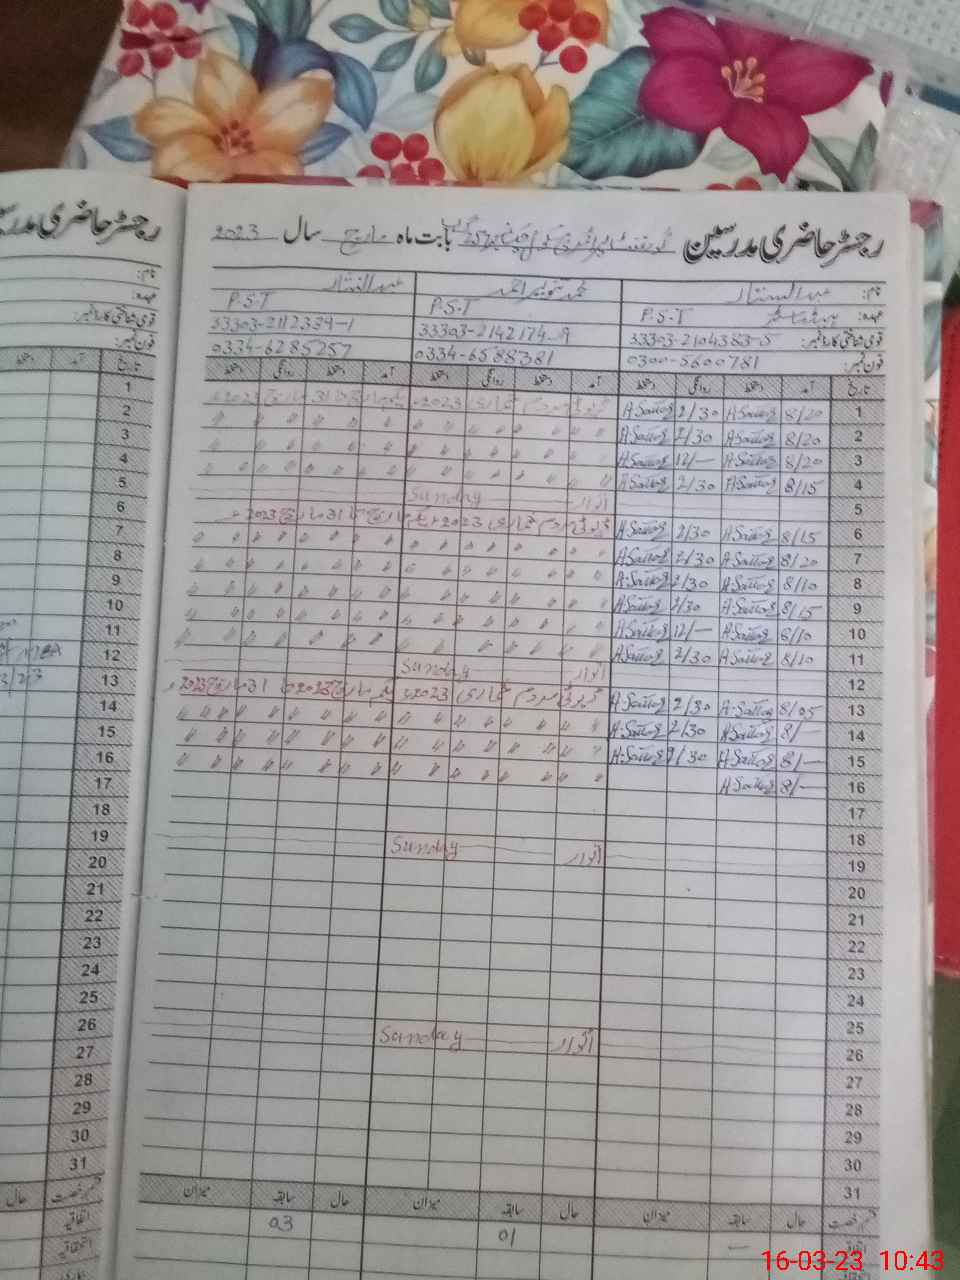 رجسٹر حاضری مدرسین گورنمنٹ پرائمری سکول بابت ماہ مارچ سال 2023
نام: عبدالستار محمد تنویر احمد عبدالستار
عہدہ: P.S.T P.S.T P.S.T
قومی شناختی کارڈ نمبر: 33303-2104383-5 33303-2142174-9 33303-2112339-1
فون نمبر: 0300-5600781 0334-6588381 0334-6285257
تاریخ آمد دستخط روانگی دستخط آمد دستخط روانگی دستخط آمد دستخط روانگی دستخط
1 8/20 A Sattar 2/30 A Sattar مردم شماری 2023
2 8/20 A Sattar 2/30 A Sattar 〃 〃 〃 〃 〃 〃 〃 〃
3 8/20 A Sattar 12/— A Sattar 〃 〃 〃 〃 〃 〃 〃 〃
4 8/15 A Sattar 2/30 A Sattar 〃 〃 〃 〃 〃 〃 〃 〃
5 اتوار Sunday
6 8/15 A Sattar 2/30 A Sattar ڈیوٹی مردم شماری 2023 یکم مارچ تا 31 مارچ 2023
7 8/20 A Sattar 2/30 A Sattar 〃 〃 〃 〃 〃 〃 〃 〃
8 8/10 A Sattar 2/30 A.Sattar 〃 〃 〃 〃 〃 〃 〃 〃
9 8/15 A Sattar 2/30 A Sattar 〃 〃 〃 〃 〃 〃 〃 〃
10 8/10 A Sattar 12/— A Sattar 〃 〃 〃 〃 〃 〃 〃 〃
11 8/10 A Sattar 2/30 A Sattar 〃 〃 〃 〃 〃 〃 〃 〃
12 اتوار Sunday
13 8/05 A.Sattar 2/30 A Sattar ڈیوٹی مردم شماری 2023 یکم مارچ 2023 تا 31 مارچ 2023
14 8/— A Sattar 2/30 A.Sattar 〃 〃 〃 〃 〃 〃 〃 〃
15 8/— A Sattar 2/30 A.Sattar 〃 〃 〃 〃 〃 〃 〃 〃
16 8/— A Sattar 〃 〃 〃 〃 〃 〃 〃 〃
17
18
19 اتوار Sunday
20
21
22
23
24
25
26 اتوار Sunday
27
28
29
30
31
قسم رخصت حال سابقہ میزان حال سابقہ میزان حال سابقہ میزان
اتفاقیہ — 01 03
رجسٹر حاضری
نام:
عہدہ:
قومی شناختی کارڈ نمبر:
فون نمبر:
تاریخ آمد دستخط
1
2
3
4
5
6
7
8
9
10
11
12
13
14
15
16
17
18
19
20
21
22
23
24
25
26
27
28
29
30
31
قسم رخصت حال
اتفاقیہ
16-03-23 10:43